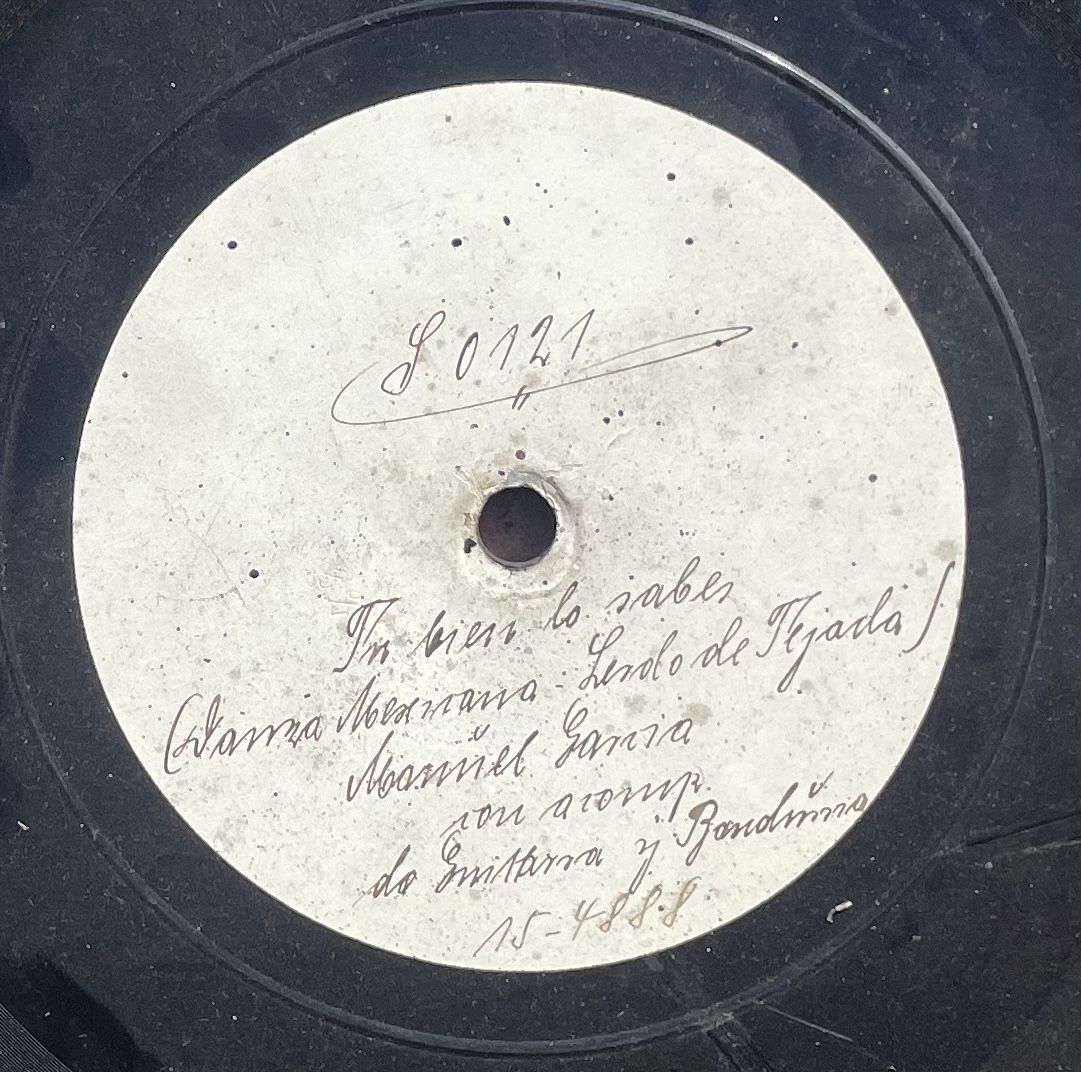 S. 0121
Tu bien lo sabes
(Danza Mexicana - Lerdo de Tejada)
Manuel Garcia
con acomp.
de Guitarra y Bandurria
15-4888.